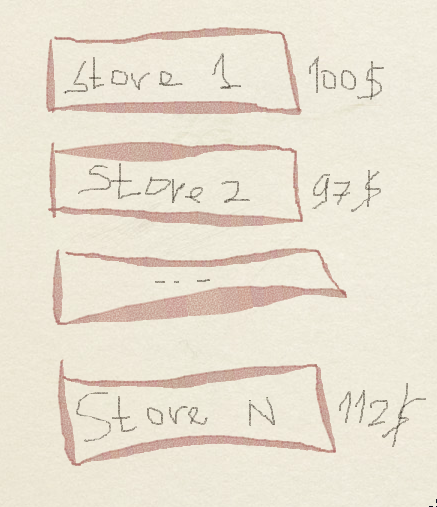 Store 1 100$
Store 2 97$
---
Store N 112$